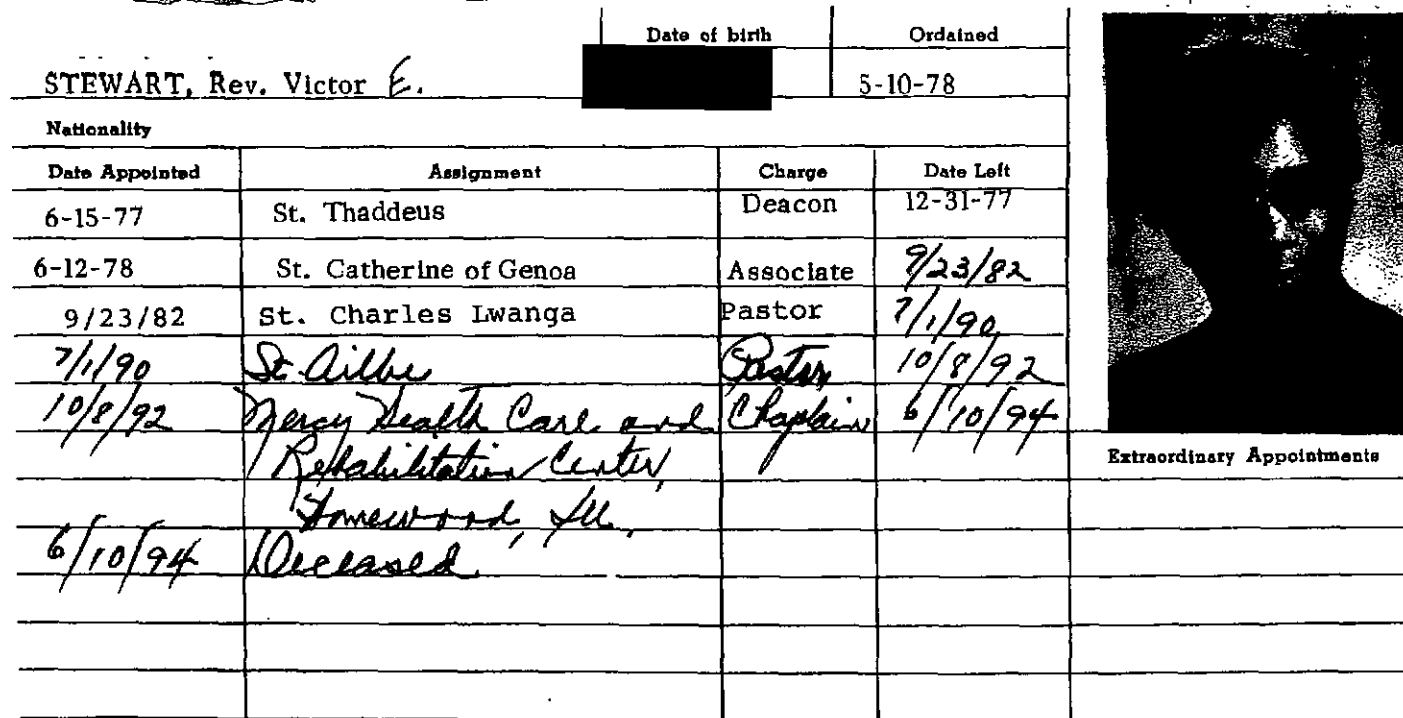 Date of birth Ordained
STEWART, Rev. Victor E. 5-10-78
Nationality
Date Appointed Assignment Charge Date Left
6-15-77 St. Thaddeus Deacon 12-31-77
6-12-78 St. Catherine of Genoa Associate 9/23/82
9/23/82 St. Charles Lwanga Pastor 7/1/90
7/1/90 St. Ailbe Pastor 10/8/92
10/8/92 Mercy Health Care and Chaplain 6/10/94
Rehabilitation Center,
Homewood, Ill.
6/10/94 Deceased
Extraordinary Appointments